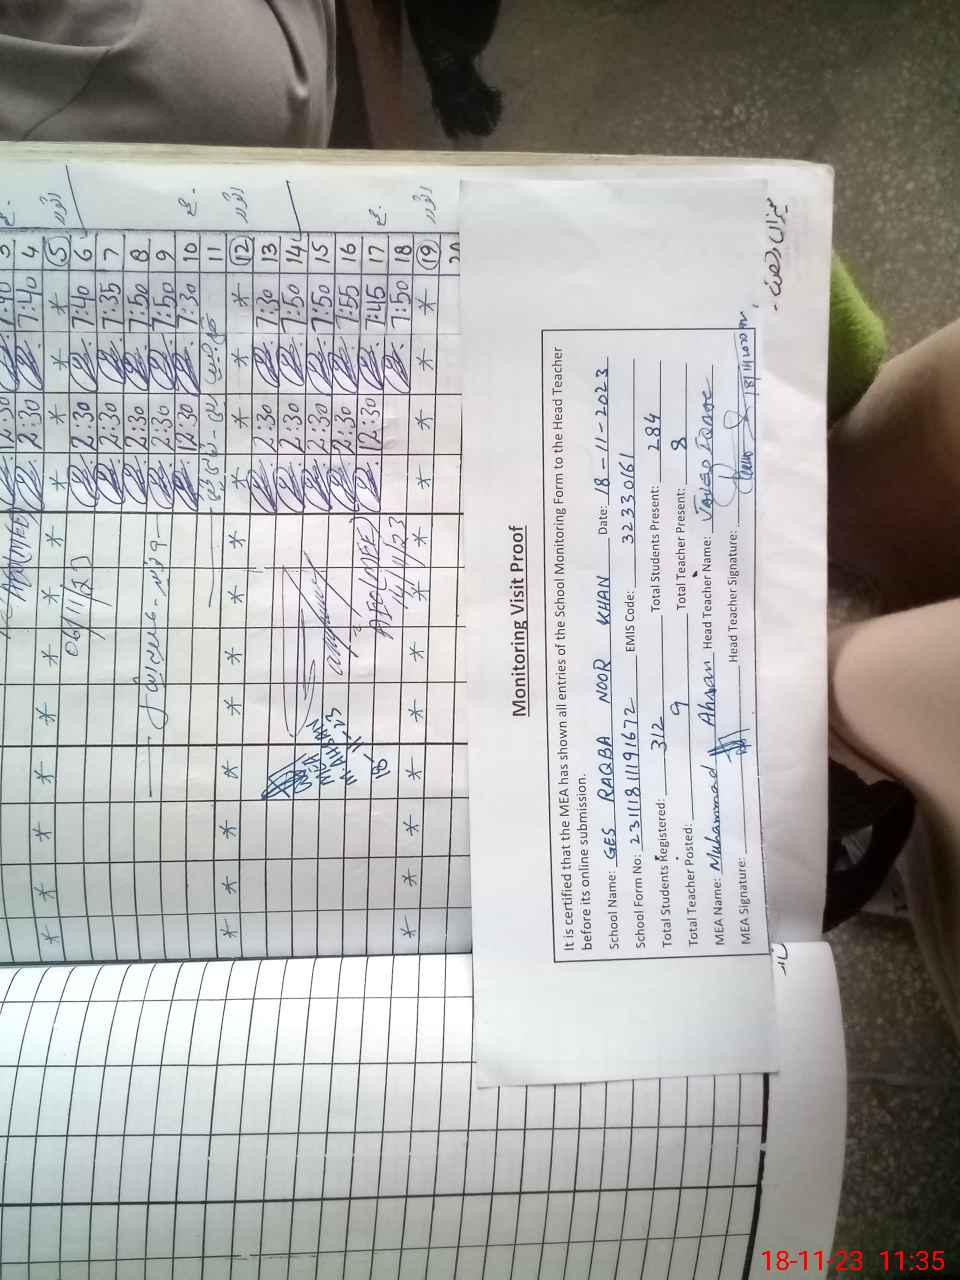 3 7:40 2:30
4 7:40 2:30 AEO(MEE)
5 * * * * * * * * * * * اتوار
6 7:40 2:30 06/11/23
7 7:35 2:30
8 7:50 2:30
9 7:50 2:30
10 7:30 12:30
11
12 * * * * * * * * * * * اتوار
13 7:30 2:30
14 7:50 2:30 MEA
15 7:50 2:30 M AHSAN
16 7:55 2:30 18-11-23
17 7:45 12:30 AEO(MEE) 14/11/23
18 7:50
19 * * * * * * * * * * * اتوار
20
Monitoring Visit Proof
It is certified that the MEA has shown all entries of the School Monitoring Form to the Head Teacher
before its online submission.
School Name: GES RAQBA NOOR KHAN Date: 18-11-2023
School Form No: 231118111191672 EMIS Code: 32330161
Total Students Registered: 312 Total Students Present: 284
Total Teacher Posted: 9 Total Teacher Present: 8
MEA Name: Muhammad Ahsan Head Teacher Name: JAVED IQBAL
MEA Signature: Head Teacher Signature: 18/11/2023
میزان رخصت
18-11-23 11:35